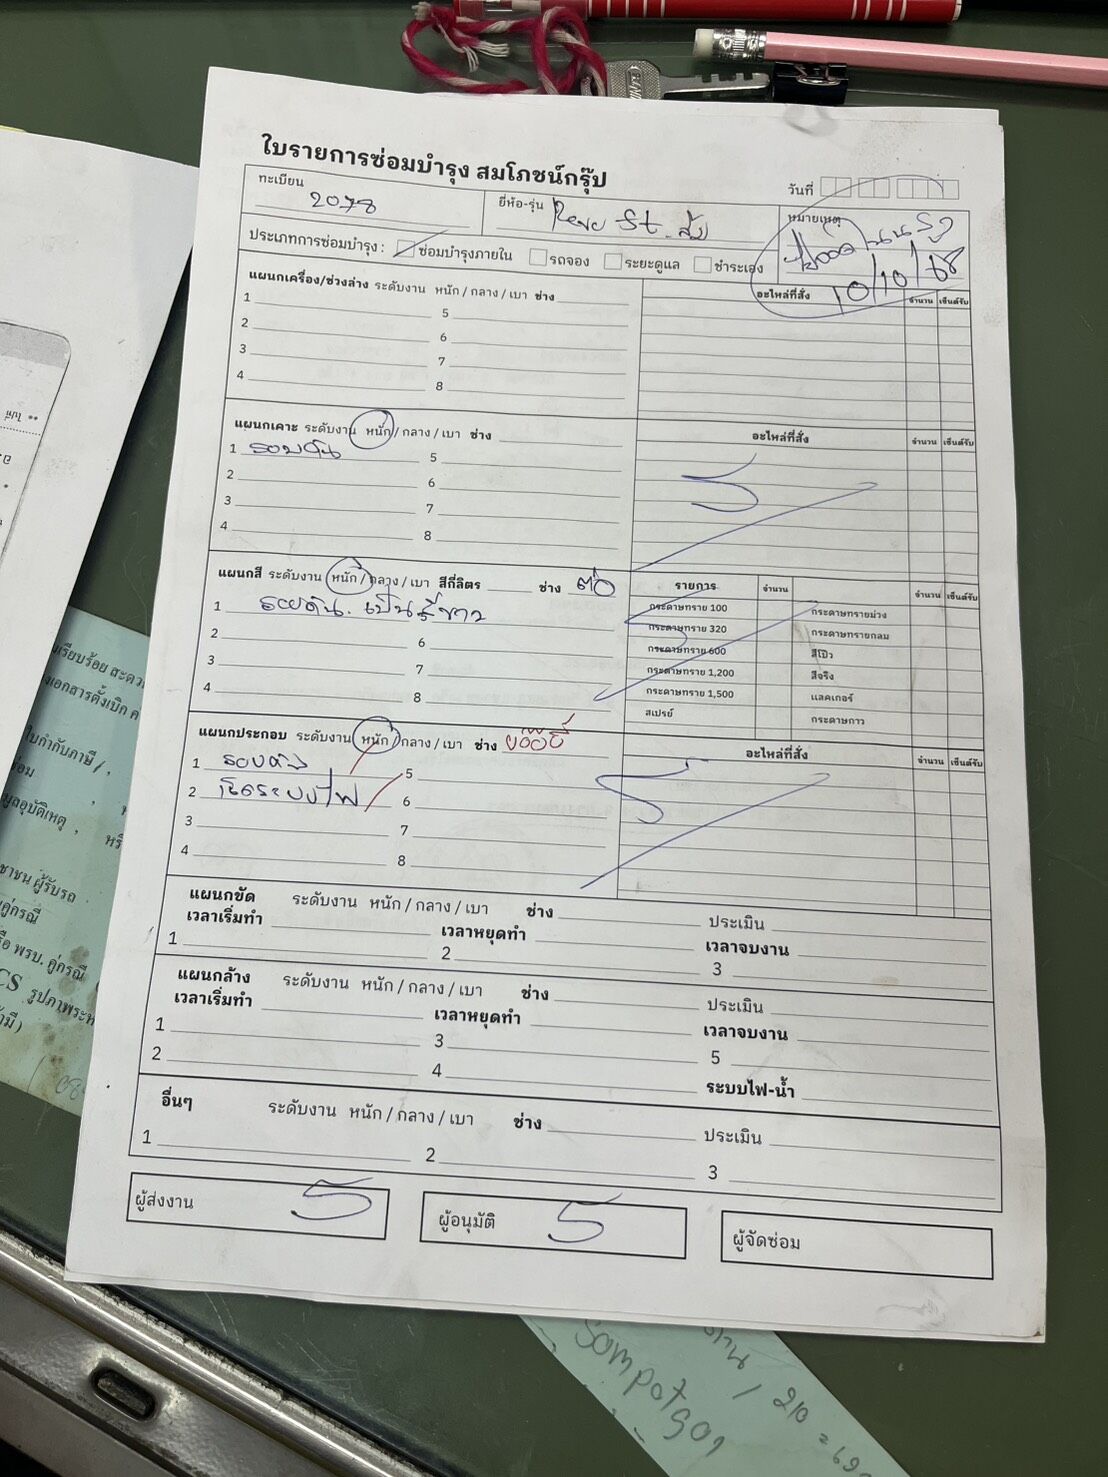 ใบรายการซ่อมบำรุง สมโภชน์กรุ๊ป
วันที่
ทะเบียน 2078
ยี่ห้อ-รุ่น Revo St. ส้ม
หมายเหตุ
10/10/68
ประเภทการซ่อมบำรุง : ซ่อมบำรุงภายใน รถจอง ระยะดูแล ชำระเอง
แผนกเครื่อง/ช่วงล่าง ระดับงาน หนัก / กลาง / เบา ช่าง
อะไหล่ที่สั่ง จำนวน เซ็นต์รับ
1 5
2 6
3 7
4 8
แผนกเคาะ ระดับงาน หนัก / กลาง / เบา ช่าง
อะไหล่ที่สั่ง จำนวน เซ็นต์รับ
1 รอบคัน 5
2 6
3 7
4 8
แผนกสี ระดับงาน หนัก / กลาง / เบา สีกี่ลิตร ช่าง ต่อ
รายการ จำนวน จำนวน เซ็นต์รับ
1 รอบคัน เป็นสีขาว
2 6
3 7
4 8
กระดาษทราย 100 กระดาษทรายม่วง
กระดาษทราย 320 กระดาษทรายกลม
กระดาษทราย 600 สีโป๊ว
กระดาษทราย 1,200 สีจริง
กระดาษทราย 1,500 แลคเกอร์
สเปรย์ กระดาษกาว
แผนกประกอบ ระดับงาน หนัก / กลาง / เบา ช่าง
อะไหล่ที่สั่ง จำนวน เซ็นต์รับ
1 รอบคัน 5
2 เช็คระบบไฟ 6
3 7
4 8
แผนกขัด ระดับงาน หนัก / กลาง / เบา ช่าง ประเมิน
เวลาเริ่มทำ เวลาหยุดทำ เวลาจบงาน
1 2 3
แผนกล้าง ระดับงาน หนัก / กลาง / เบา ช่าง ประเมิน
เวลาเริ่มทำ เวลาหยุดทำ เวลาจบงาน
1 3 5
2 4 ระบบไฟ-น้ำ
อื่นๆ ระดับงาน หนัก / กลาง / เบา ช่าง ประเมิน
1 2 3
ผู้ส่งงาน
ผู้อนุมัติ
ผู้จัดซ่อม
เรียบร้อย สะดว
เอกสารตั้งเบิก ค
ใบกำกับภาษี / ,
มูลอุบัติเหตุ , หรื
ชาชน ผู้รับรถ
คู่กรณี
พรบ. คู่กรณี
CS รูปภาพระห